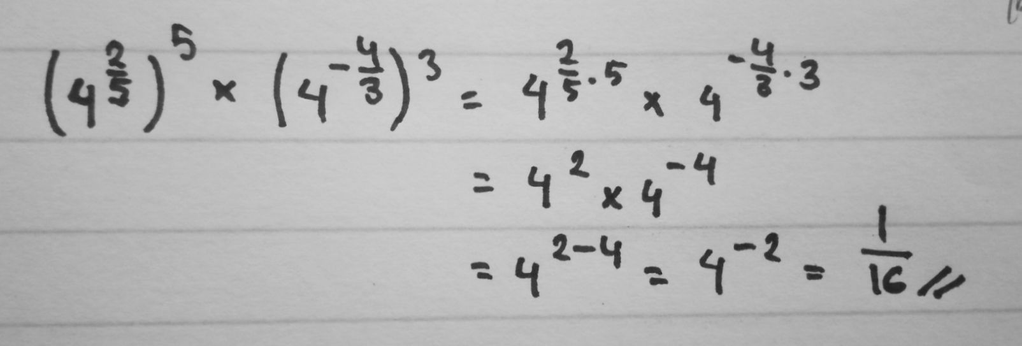 (4^{2/5})^5 × (4^{-4/3})^3 = 4^{2/5 · 5} × 4^{-4/3 · 3}
= 4^2 × 4^{-4}
= 4^{2-4} = 4^{-2} = 1/16 //